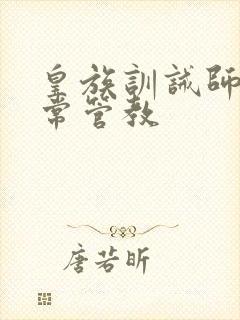 皇族訓誡師
常管教
唐若昕